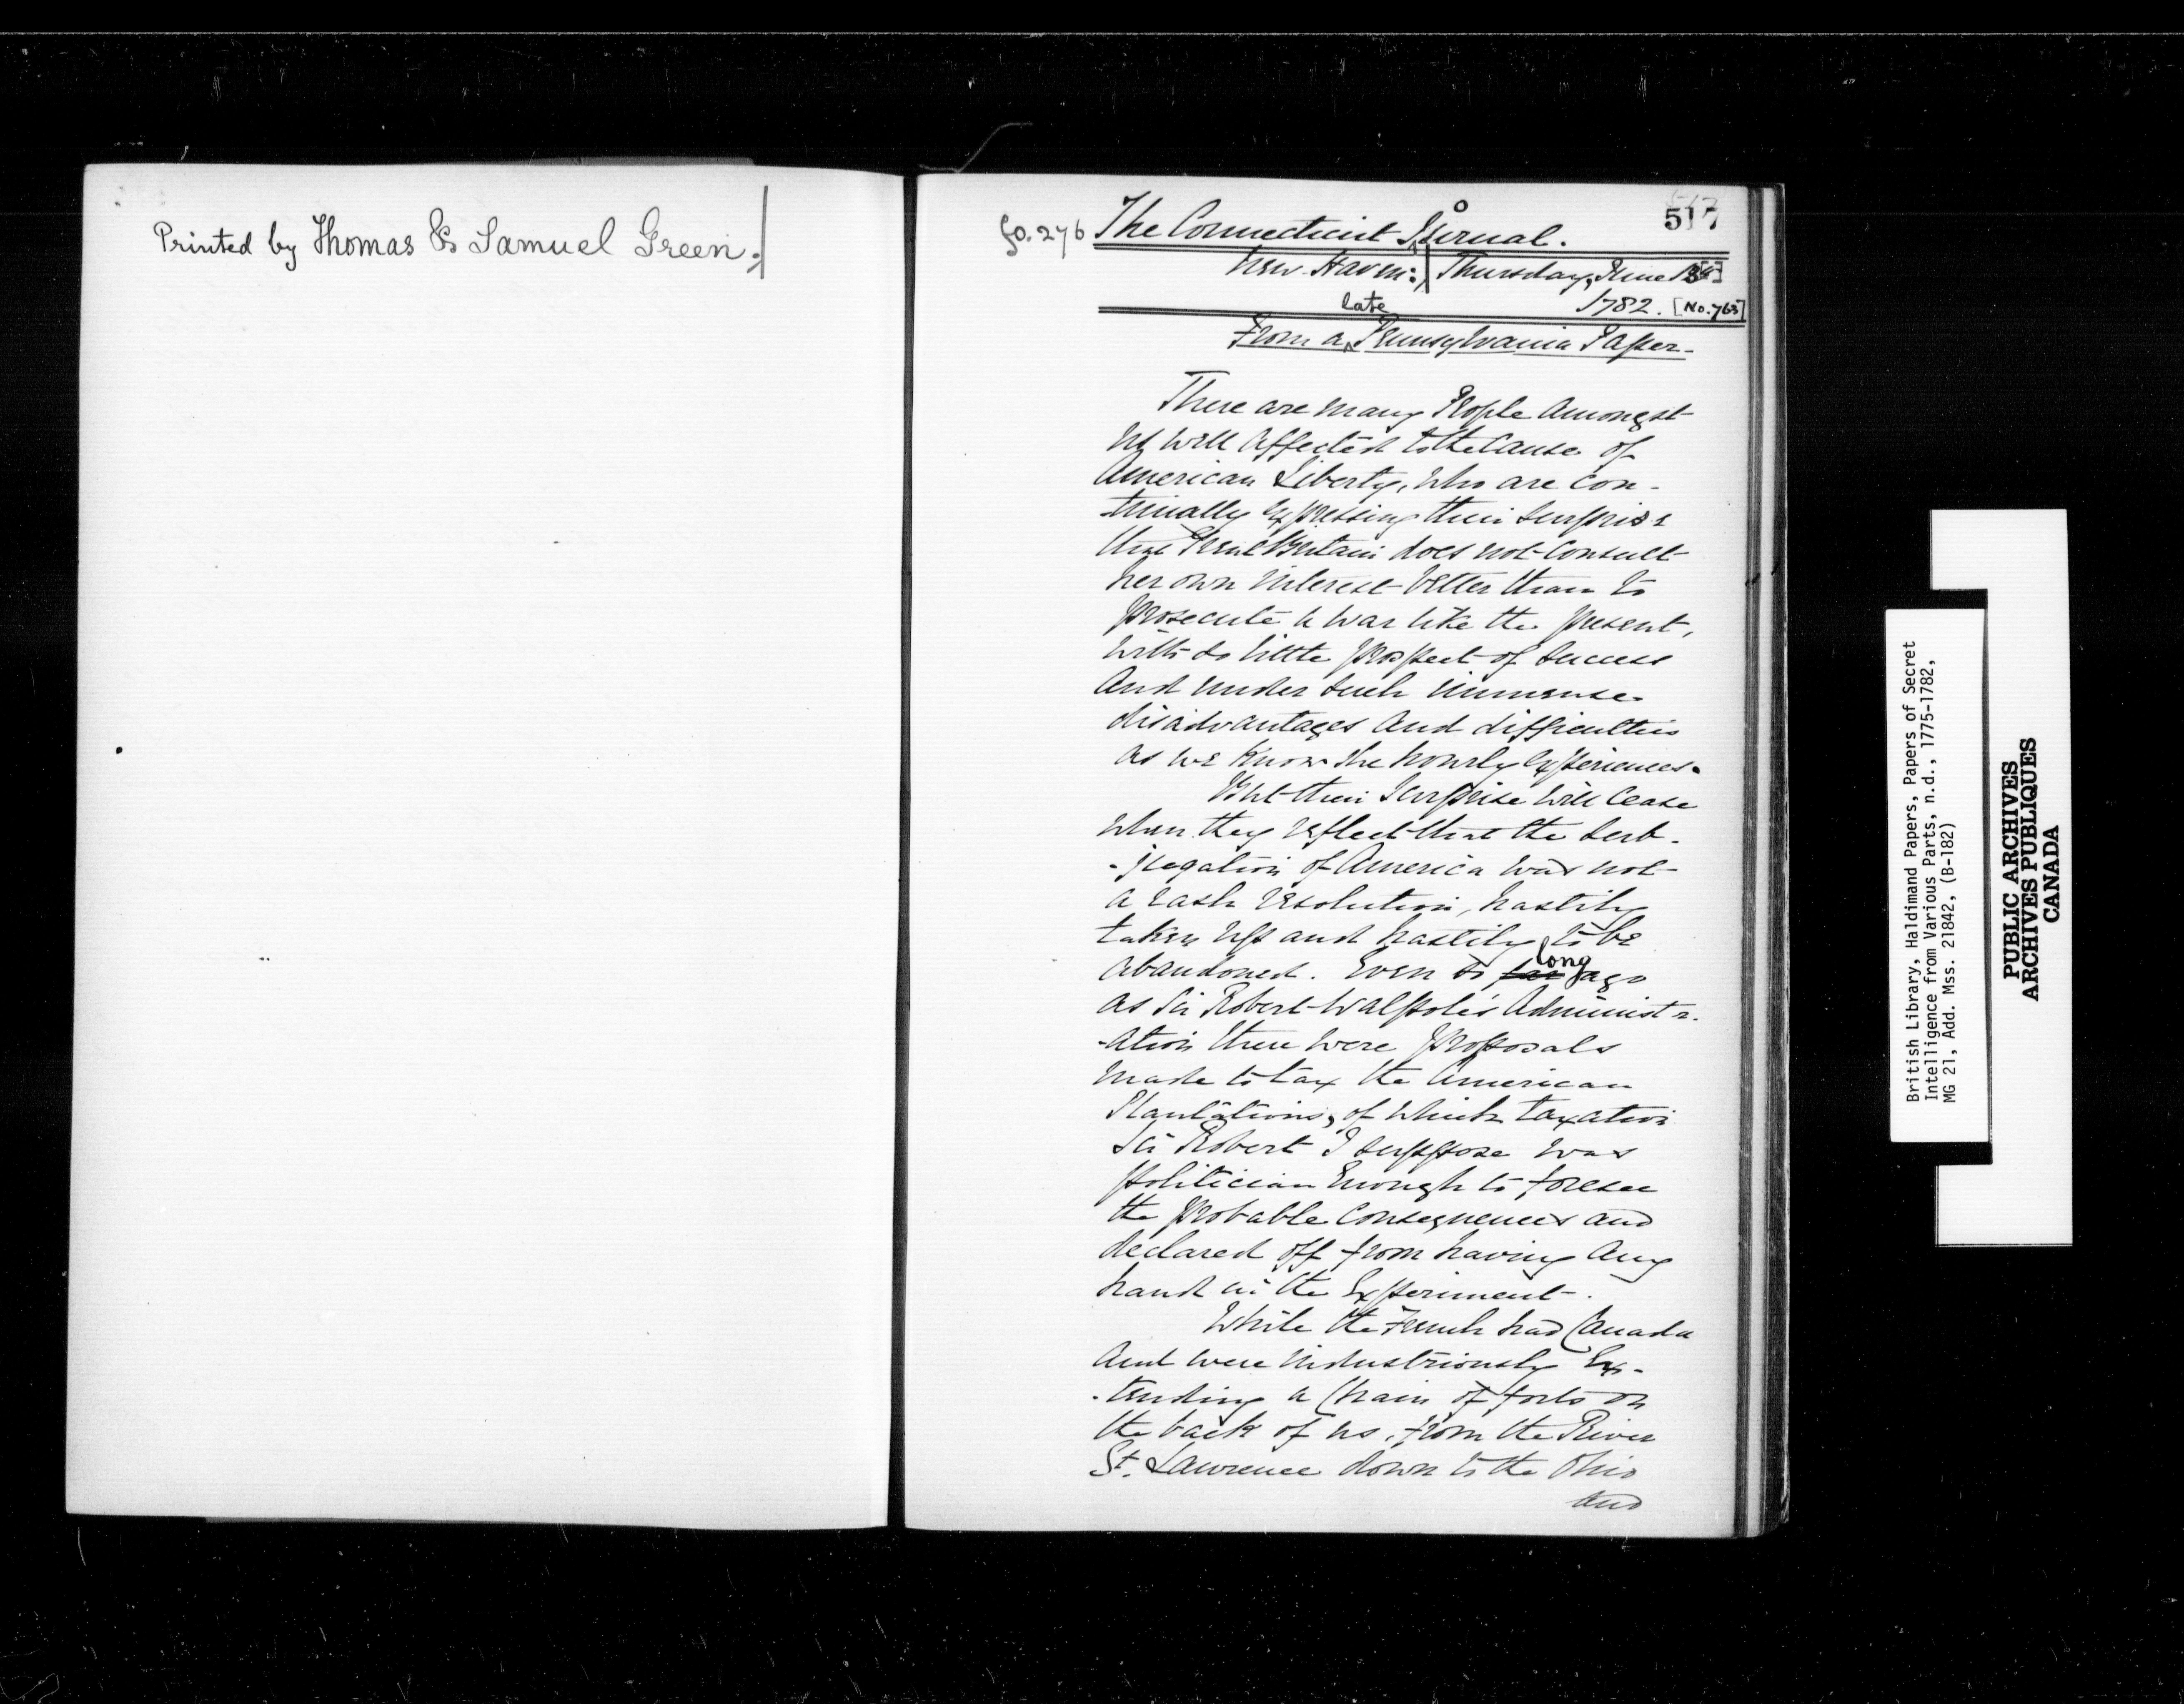 Printed by Thomas & Samuel Green.
fo. 276 The Connecticut Journal.
517
New-Haven: Thursday, June 13
1782. [No. 763]
From a late Pennsylvania Paper.
There are many People amongst
us well affected to the Cause of
American Liberty, who are con-
-tinually expressing their surprise
that Great Britain does not consult
her own interest better than to
prosecute a war like the present,
with so little prospect of success
and under such immense
disadvantages and difficulties
as we know she hourly experiences.
But their surprise will cease
when they reflect that the sub-
-jugation of America was not
a rash resolution, hastily
taken up and hastily to be
abandoned. Even so far long ago
as Sir Robert Walpole's Administr-
-ation there were proposals
made to tax the American
Plantations, of which taxation
Sir Robert I suppose was
politician enough to foresee
the probable consequences and
declared off from having any
hand in the Experiment.
While the French had Canada
and were industriously Ex-
-tending a Chain of forts on
the back of us, from the River
St. Lawrence down to the Ohio
and
British Library, Haldimand Papers, Papers of Secret
Intelligence from Various Parts, n.d., 1775-1782,
MG 21, Add. Mss. 21842, (B-182)
PUBLIC ARCHIVES
ARCHIVES PUBLIQUES
CANADA